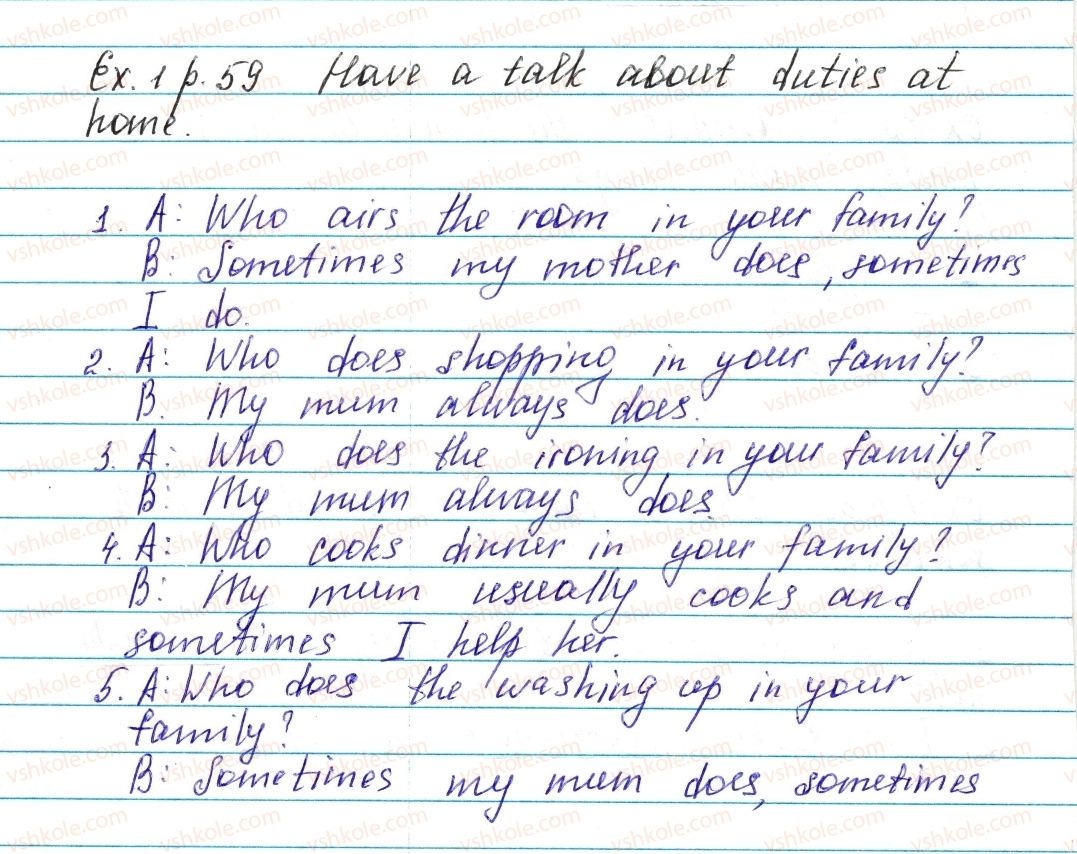 Ex. 1 p. 59 Have a talk about duties at
home.
1. A: Who airs the room in your family?
B: Sometimes my mother does, sometimes
I do.
2. A: Who does shopping in your family?
B. My mum always does.
3. A: Who does the ironing in your family?
B: My mum always does
4. A: Who cooks dinner in your family?
B: My mum usually cooks and
sometimes I help her.
5. A: Who does the washing up in your
family?
B: Sometimes my mum does, sometimes